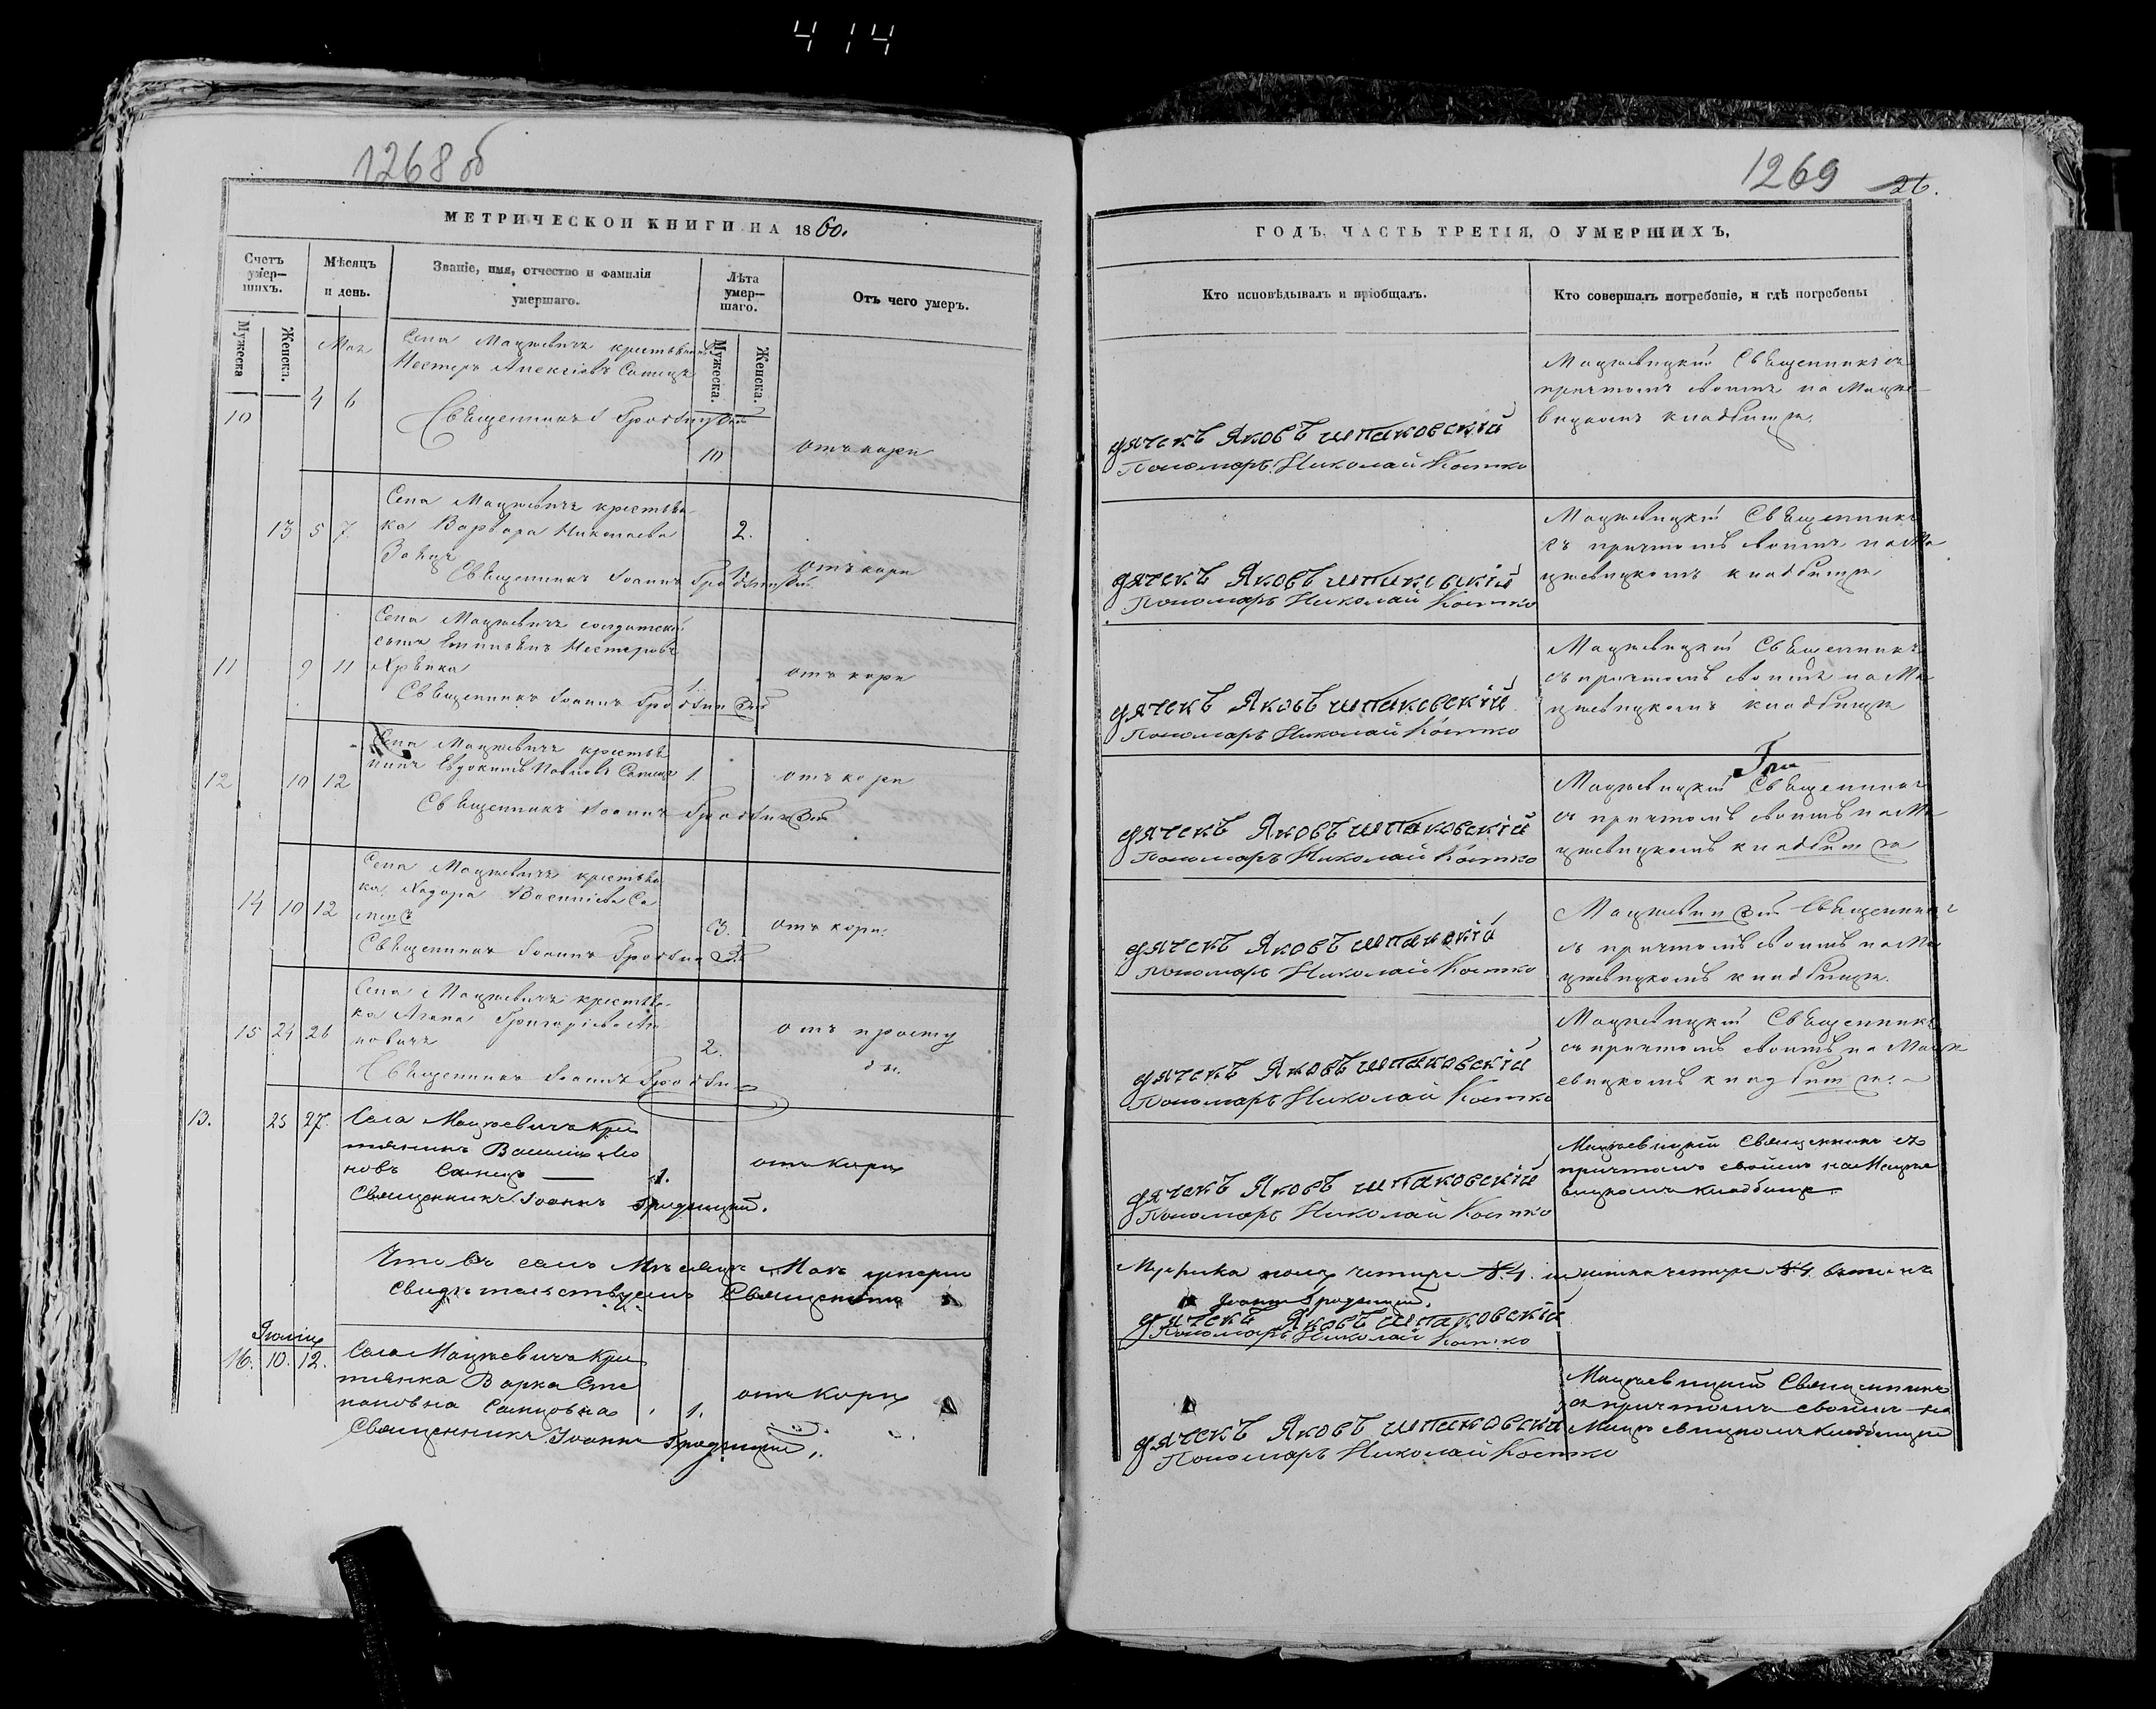 414
1268 об
МЕТРИЧЕСКОЙ КНИГИ НА 1860.
Счетъ умер-
шихъ.
Мѣсяцъ
и день.
Званіе, имя, отчество и фамилія
умершаго.
Лѣта
умер-
шаго.
Отъ чего умеръ.
Мужеска
Женска.
Мужеска.
Женска.
Маія
10
4 6
Села Мацкевичъ крестьянинъ
Нестеръ Алексіевъ Самецъ
Священникъ
10
отъ кори
13 5 7
Села Мацкевичъ крестьян
ка Варвара Николаева
Заяцъ
2.
отъ кори
Священникъ Іоаннъ
11 9 11
Села Мацкевичъ солдатскій
сынъ Нестеровъ
1.
отъ кори
Священникъ Іоаннъ
12 10 12
Села Мацкевичъ крестья
нинъ Евдокимъ Павловъ Самецъ 1.
отъ кори
Священникъ Іоаннъ
14 10 12
Села Мацкевичъ крестьян
ка Хадора Василіева Са
мецъ
3.
отъ кори.
Священникъ Іоаннъ
15 24 26
Села Мацкевичъ крестьян
ка Агапа Григоріева
новичъ
2.
отъ просту
ды.
Священникъ Іоаннъ
13. 25 27.
Села Мацкевичъ кре
стянинъ Василій
новъ Самецъ
1.
отъ кори
Священникъ Іоаннъ Гродзицкій.
Что въ семъ Мѣсяцѣ Маѣ умерло
свидѣтельствуемъ Священникъ
Іюлій
16. 10. 12.
Села Мацкевичъ кре
стянка Варка Сте
пановна Самцовна
1.
отъ кори
Священникъ Іоаннъ Гродзицкій.
1269 26.
ГОДЪ, ЧАСТЬ ТРЕТІЯ, О УМЕРШИХЪ,
Кто исповѣдывалъ и пріобщалъ.
Кто совершалъ погребеніе, и гдѣ погребены
дячекъ Яковъ шпаковскій
Пономаръ Николай Костко
Мацкевицкій Священникъ съ
причтомъ своимъ на Мацке
вицкомъ кладбищи.
дячекъ Яковъ шпаковскій
Пономаръ Николай Костко
Мацкевицкій Священникъ
съ причтомъ своимъ на Ма
цкевицкомъ кладбищи
дячекъ Яковъ шпаковскій
Пономаръ Николай Костко
Мацкевицкій Священникъ
съ причтомъ своимъ на Ма
цкевицкомъ кладбищи
дячекъ Яковъ шпаковскій
Пономаръ Николай Костко
Мацкевицкій Священникъ
съ причтомъ своимъ на Ма
цкевицкомъ кладбищи
дячекъ Яковъ шпаковскій
Пономаръ Николай Костко
Мацкевицкій Священникъ
съ причтомъ своимъ на Ма
цкевицкомъ кладбищи.
дячекъ Яковъ шпаковскій
Пономаръ Николай Костко
Мацкевицкій Священникъ
съ причтомъ своимъ на Мацк
евицкомъ кладбищи.
дячекъ Яковъ шпаковскій
Пономаръ Николай Костко
Мацкевицкій Священникъ съ
причтомъ своимъ на Мацке
вицкомъ кладбище.
Мужеска полу четыре № 4. и женска четыре № 4.
Іоаннъ Гродзицкій.
дячекъ Яковъ шпаковскій
Пономаръ Николай Костко
дячекъ Яковъ шпаковскій
Пономаръ Николай Костко
Мацкевицкій Священникъ
съ причтомъ своимъ на
Мацкевицкомъ кладбищи